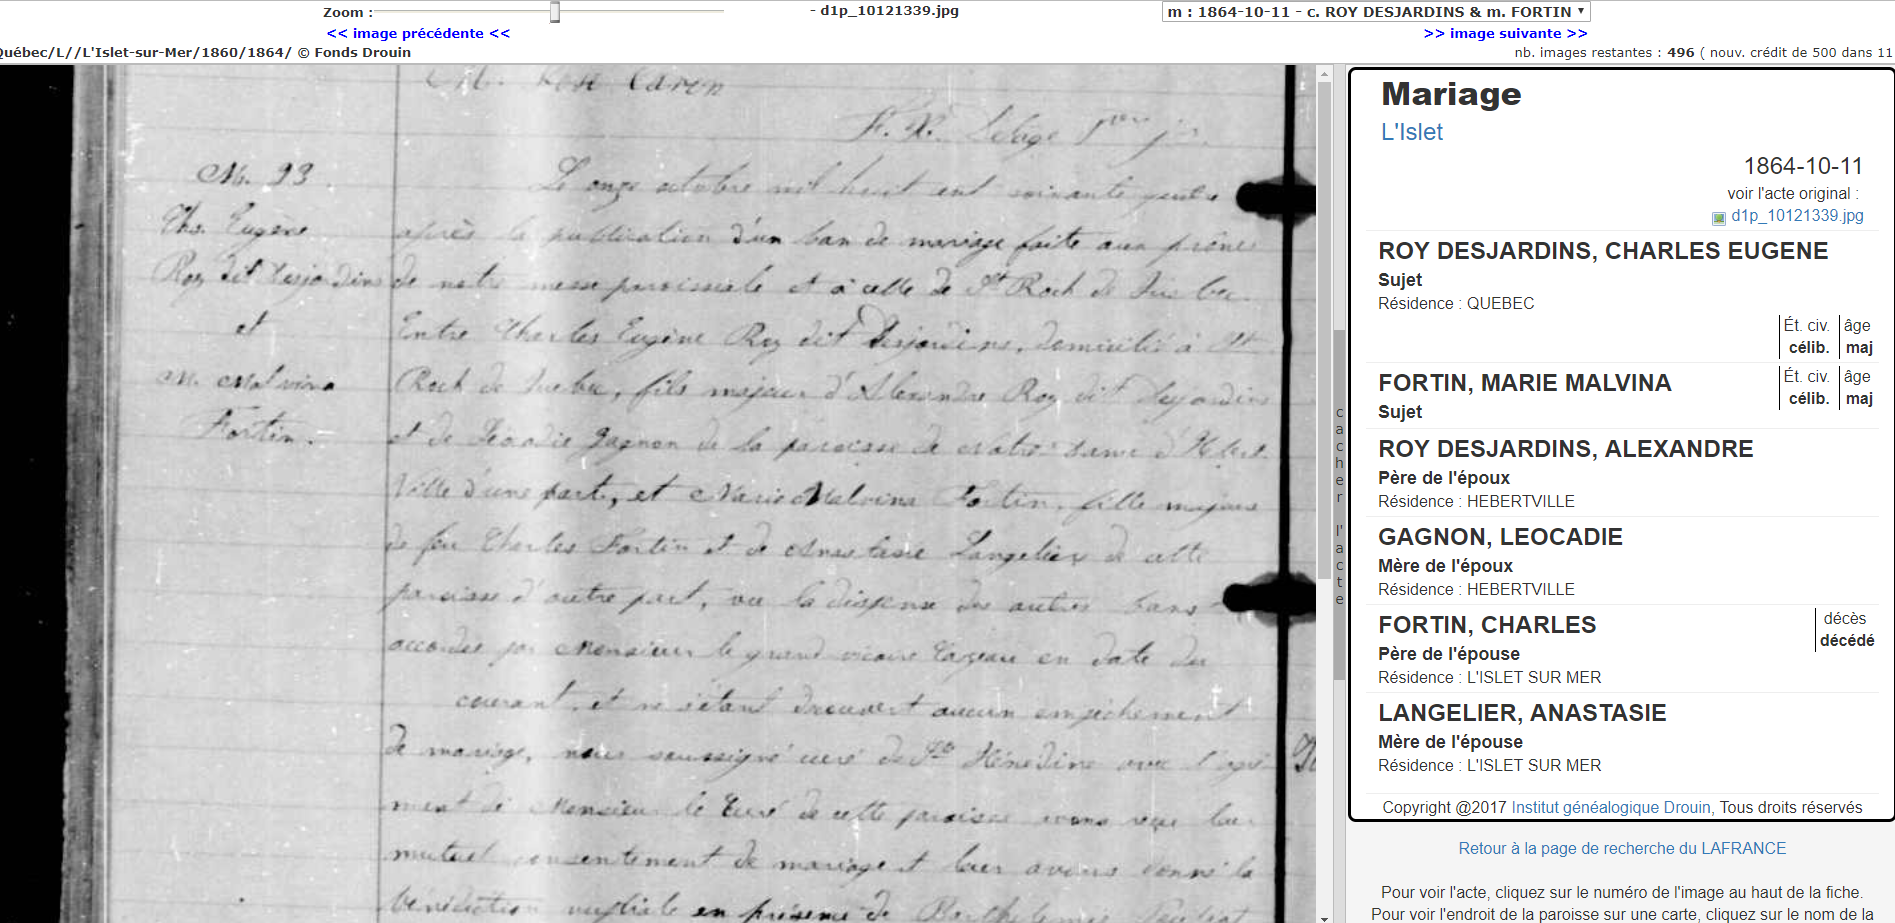 Zoom :
- d1p_10121339.jpg
m : 1864-10-11 - c. ROY DESJARDINS & m. FORTIN
<< image précédente <<
>> image suivante >>
Québec/L//L'Islet-sur-Mer/1860/1864/ © Fonds Drouin
nb. images restantes : 496 ( nouv. crédit de 500 dans 11
M. Rose Caron
F. X. Lepage
M. 93
Chs. Eugène
Roy dit Desjardins
et
M. Malvina
Fortin.
Le onze octobre mil huit cent soixante quatre
après la publication d'un ban de mariage faite aux prônes
de notre messe paroissiale et à celle de St Roch de Québec
Entre Charles Eugène Roy dit Desjardins, domicilié à St
Roch de Québec, fils majeur d'Alexandre Roy dit Desjardins
et de Léocadie Gagnon de la paroisse de Notre Dame d'Hébert
Ville d'une part, et Marie Malvina Fortin, fille majeure
de feu Charles Fortin et de Anastasie Langelier de cette
paroisse d'autre part, vu la dispense des autres bans
accordée par Monsieur le grand vicaire Cazeau en date du
courant, et ne s'étant découvert aucun empêchement
de mariage, nous soussigné curé de Ste Hénédine avec l'agré
ment de Monsieur le Curé de cette paroisse avons reçu leur
mutuel consentement de mariage et leur avons donné la
bénédiction nuptiale en présence de Barthelemi
cacher l'acte
Mariage
L'Islet
1864-10-11
voir l'acte original :
d1p_10121339.jpg
ROY DESJARDINS, CHARLES EUGENE
Sujet
Résidence : QUEBEC
Ét. civ. âge
célib. maj
FORTIN, MARIE MALVINA
Sujet
Ét. civ. âge
célib. maj
ROY DESJARDINS, ALEXANDRE
Père de l'époux
Résidence : HEBERTVILLE
GAGNON, LEOCADIE
Mère de l'époux
Résidence : HEBERTVILLE
FORTIN, CHARLES
Père de l'épouse
Résidence : L'ISLET SUR MER
décès
décédé
LANGELIER, ANASTASIE
Mère de l'épouse
Résidence : L'ISLET SUR MER
Copyright @2017 Institut généalogique Drouin, Tous droits réservés
Retour à la page de recherche du LAFRANCE
Pour voir l'acte, cliquez sur le numéro de l'image au haut de la fiche.
Pour voir l'endroit de la paroisse sur une carte, cliquez sur le nom de la